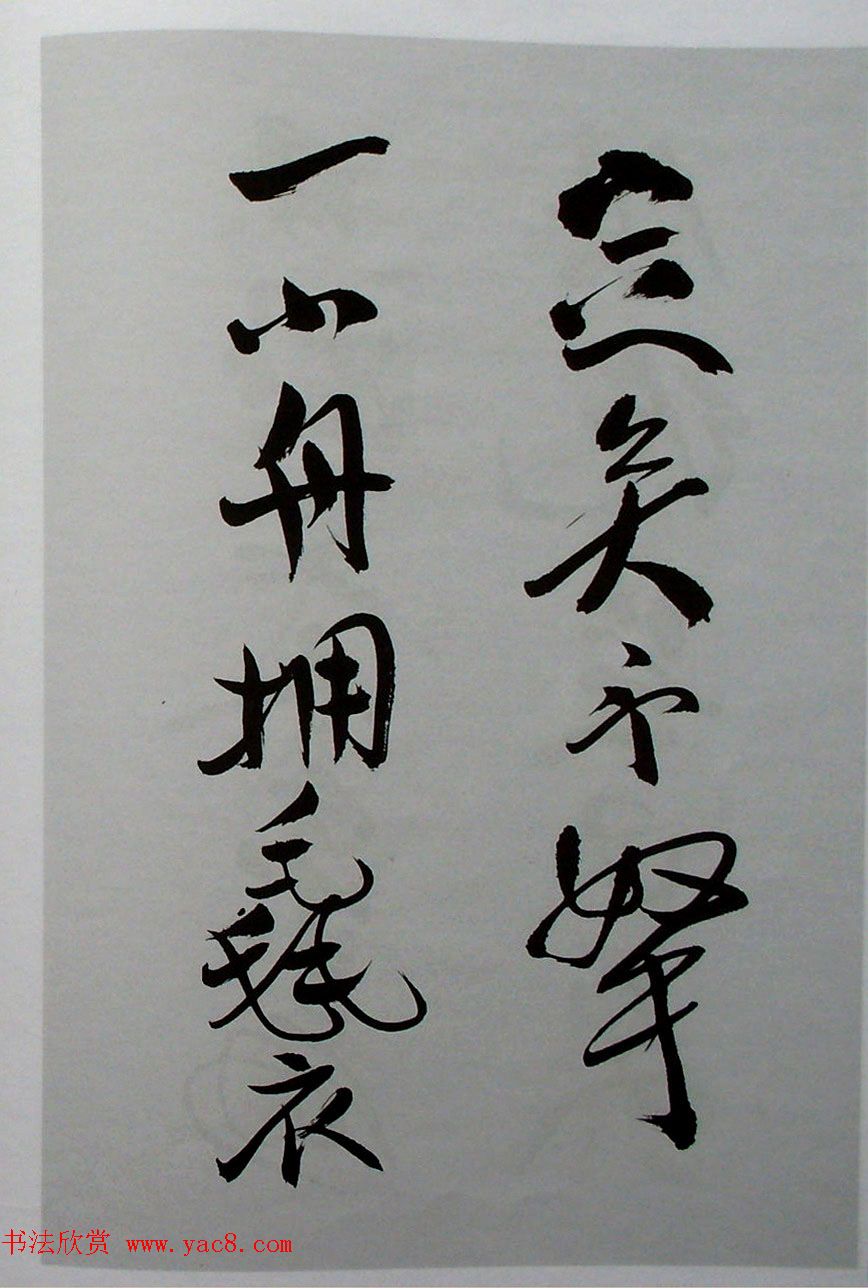 立矣不拏
一小舟拥毳衣
书法欣赏 www.yac8.com